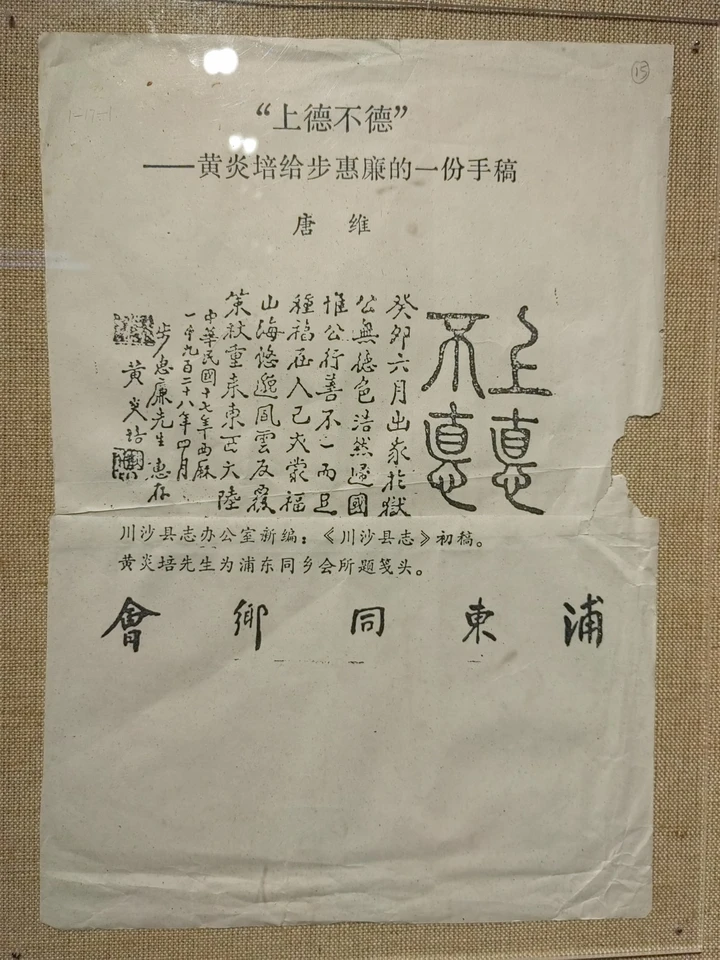 15
1-17-1
“上德不德”
——黄炎培给步惠廉的一份手稿
唐 维
上悳
不悳
癸卯六月出家於獄
公無德色浩然歸國
惟公行善不一而足
種福在人己亦蒙福
山海悠邈風雲反覆
策杖重来東亞大陸
中華民國十七年西厤
一千九百二十八年四月
步惠廉先生 惠存
黄炎培
川沙县志办公室新编：《川沙县志》初稿。
黄炎培先生为浦东同乡会所题笺头。
浦東同鄉會